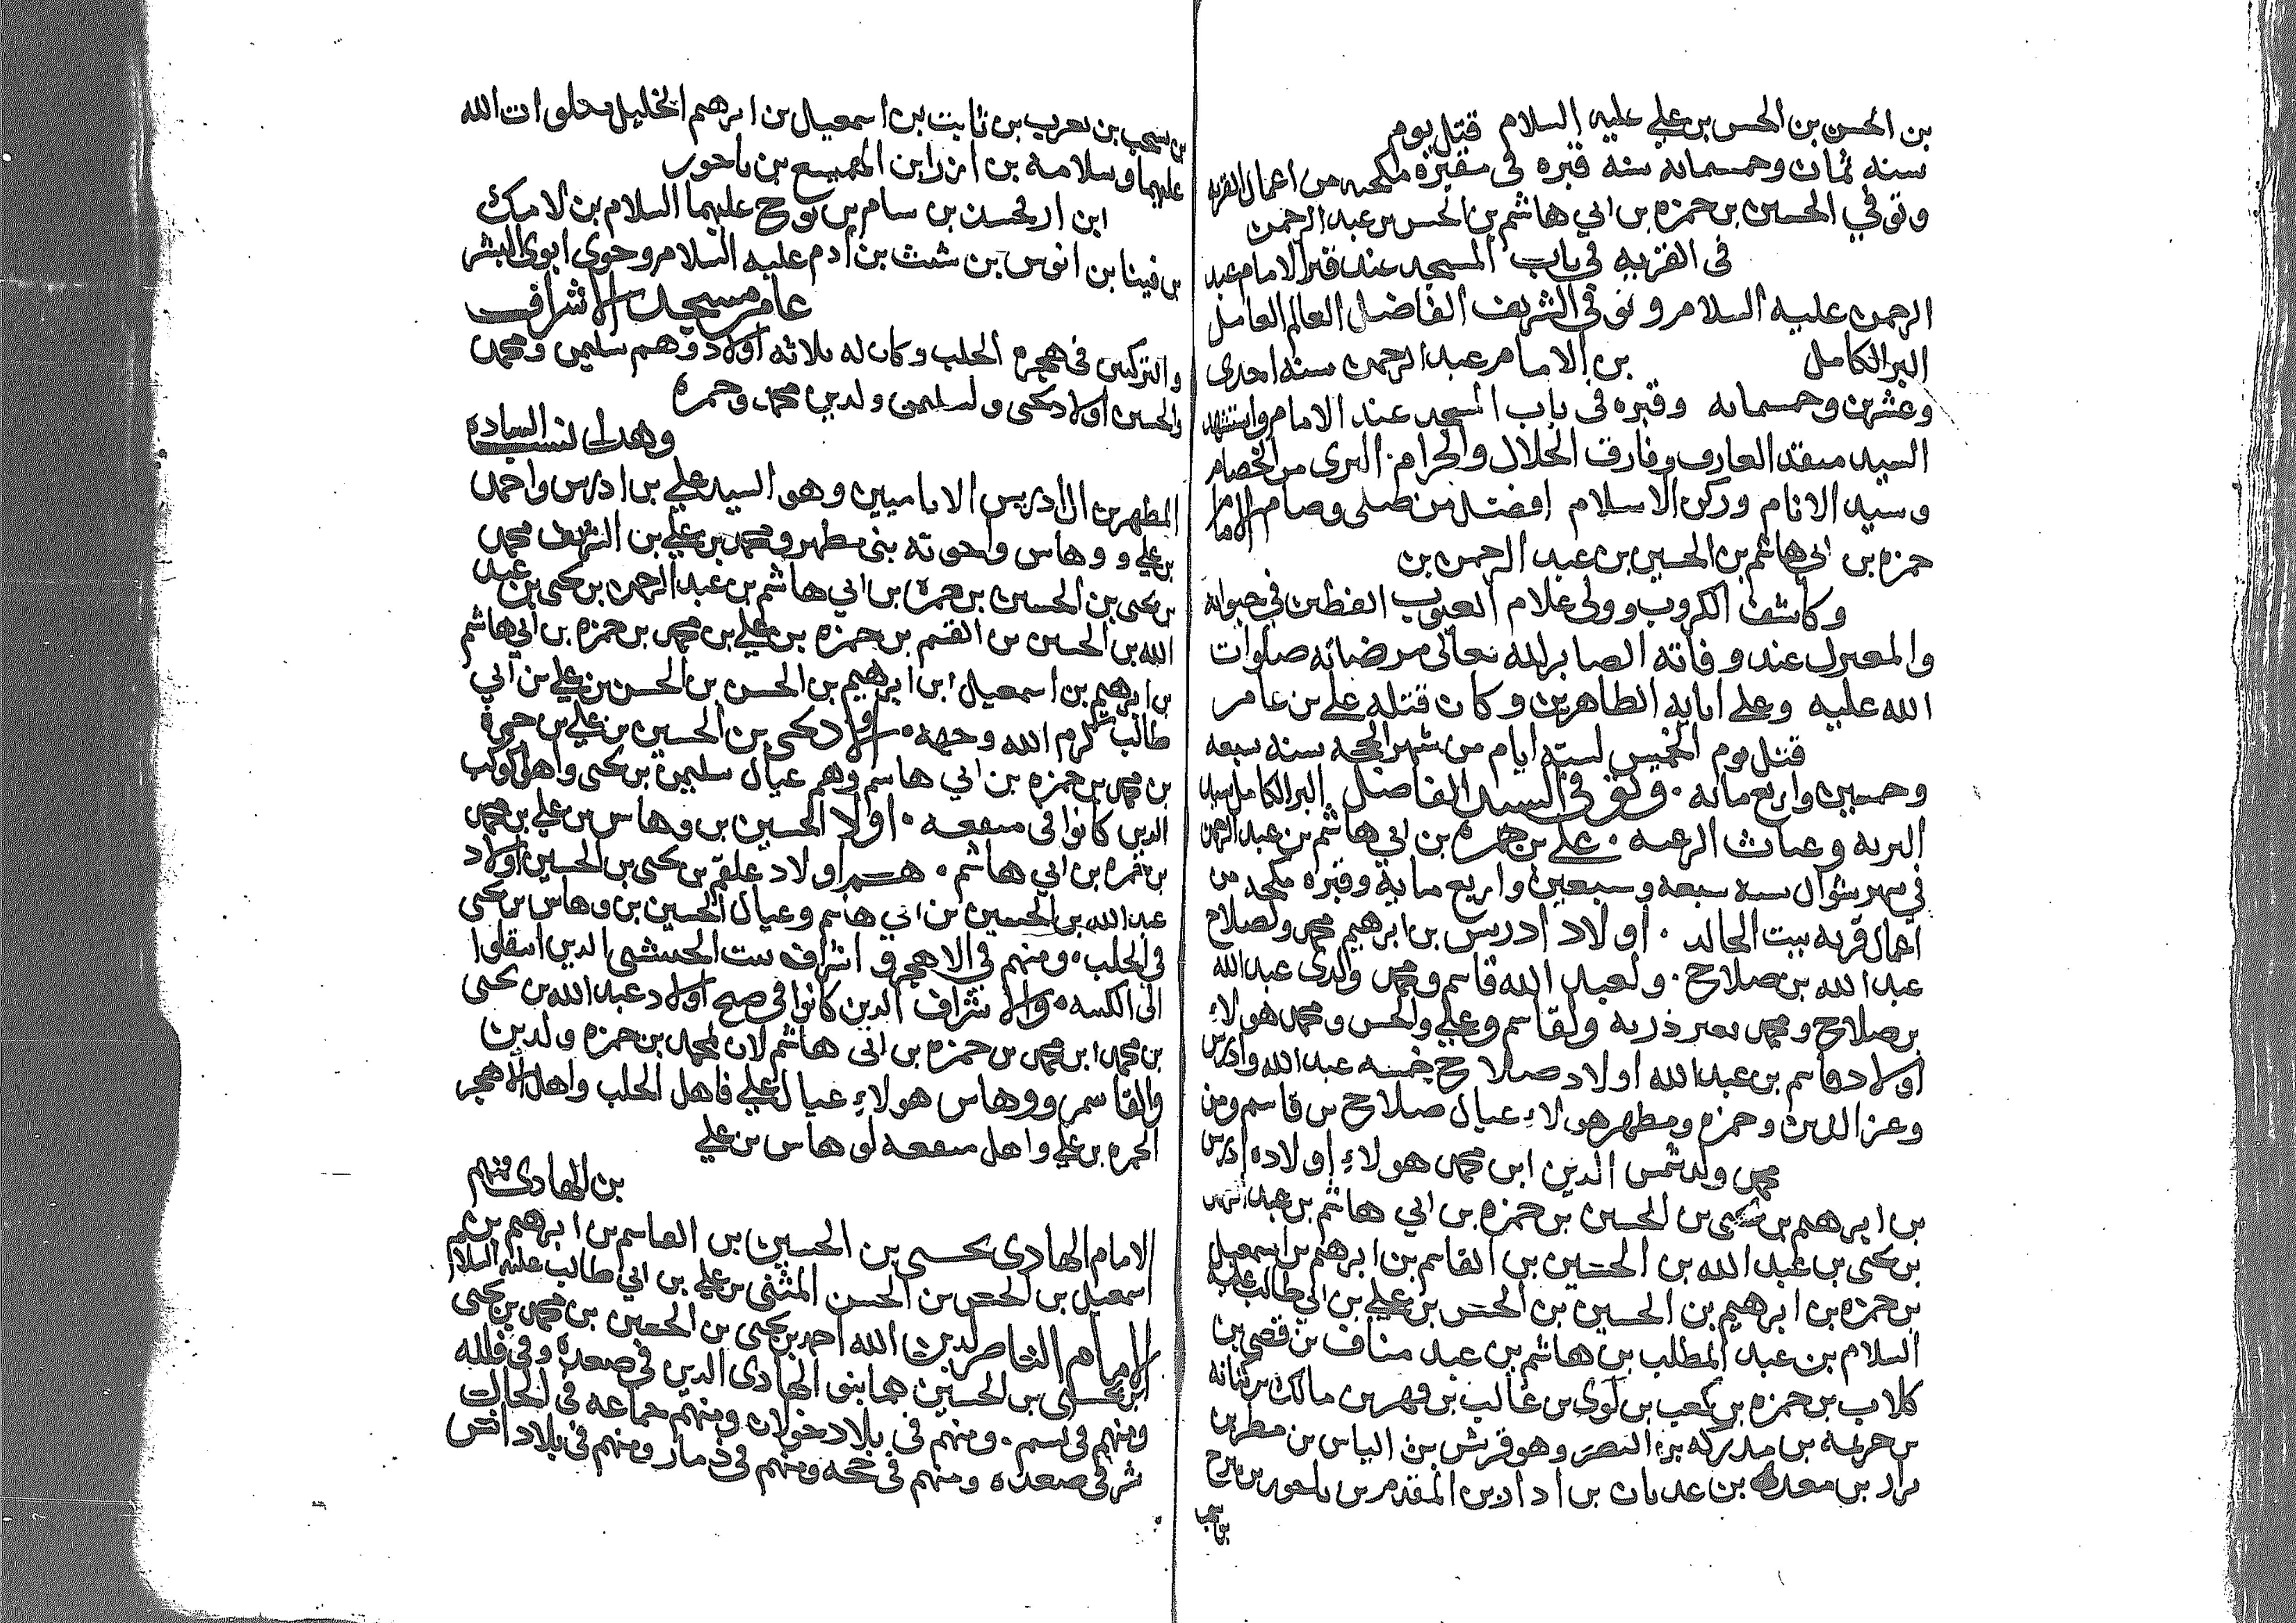 بن الحسن بن الحسن بن علي عليه السلام قتل يوم
سنه ثمان وخمسمائه سنه قبره في مقبرة من اعمال القريه
وتوفي الحسين بن حمزه بن ابي هاشم بن الحسن بن عبد الرحمن
في القريه في باب المسجد عند قبر الامام عبد
الرحمن عليه السلام وتوفي الشريف الفاضل العالم العامل
البر الكامل بن الامام عبد الرحمن سنه احدى
وعشرين وخمسمائه وقبره في باب المسجد عند الامام واستشهد
السيد العارف وفارق الحلال والحرام البرى من الخصام
وسيد الانام وركن الاسلام افضل من صلى وصام الامام
حمزه بن ابي هاشم بن الحسين بن عبد الرحمن بن
وكاشف الكروب وولي علام العيوب الفطن في
والمعنزل عند وفاته الصابر لله تعالى مرضاته صلوات
الله عليه وعلى ابايه الطاهرين وكان قتله علي بن عامر
قتل يوم الخميس لسته ايام من شهر الحجه سنه سبعه
وخمسين واربع مائه وتوفي السيد الفاضل البر الكامل سيد
البريه وغياث الرعيه علي بن حمزه بن ابي هاشم بن عبد الرحمن
في شهر شوال سنه سبعه وسبعين واربع مايه وقبره من
اعمال قريه بيت الخالد اولاد ادريس بن ابرهيم محمد ولصلاح
عبد الله بن صلاح ولعبد الله قاسم ومحمد ولدى عبد الله
بن صلاح ومحمد بغير ذريه ولقاسم وعلي والحسن ومحمد هولاء
اولاد قاسم بن عبد الله اولاد صلاح خمسه عبد الله وادريس
وعز الدين وحمزه ومطهر هولاء عيال صلاح بن قاسم ومن
محمد ولد شمس الدين ابن محمد هولاء اولاده ادريس
بن ابرهيم بن يحيى بن الحسين بن حمزه بن ابي هاشم بن عبد الرحمن
بن يحيى بن عبد الله بن الحسين بن القاسم بن ابرهم بن اسمعيل
بن حمزه بن ابرهيم بن الحسين بن الحسن بن علي بن ابي طالب عليه
السلام بن عبد المطلب بن هاشم بن عبد مناف بن قصي بن
كلاب بن حمزه بن كعب بن لوى بن غالب بن فهر بن مالك بن كنانه
بن خزيمه بن مدركه بن النضر وهو قريش بن الياس بن مضر بن
نزار بن معد بن عدنان بن اد ادبن المقدم بن ياحور بن يبرح
بن يشجب بن يعرب بن ثابت بن اسمعيل بن ابرهم الخليل صلوات الله
عليهما وسلامه بن ازر ابن بن ياحور
ابن ارفحسد بن سام بن نوح عليهما السلام بن لامك
بن فينا بن انوس بن شيث بن ادم عليه السلام وحوى ابوى البشر
عامر مسجد الاشراف
والتركيين في هجره الحلب وكان له ثلاثه اولاد وهم سليمن ومحمد
والحسين اولاد يحيى ولسليمن ولدين محمد وحمزه
وهذا نسب الساده
المطهرين ال ادريس الاماميين وهو السيد علي بن ادريس واحمد
بن علي و وهاس واخوته بني مطهر ومحمد بن علي بن الشريف محمد
بن يحيى بن الحسين بن حمزه بن ابي هاشم بن عبد الرحمن بن يحيى بن عبد
الله بن الحسين بن القسم بن حمزه بن علي بن محمد بن حمزه بن ابي هاشم
بن ابرهيم بن اسمعيل ابن ابرهيم بن الحسن بن الحسن بن علي بن ابي
طالب كرم الله وجهه اولاد يحيى بن الحسين بن علي بن حمزة
بن محمد بن حمزه بن ابي هاشم وهم عيال سليمن بن يحيى واهل كوكب
الذين كانوا في اولا الحسين بن وهاس بن علي بن محمد
بن حمزه بن ابي هاشم هم اولاد علقم بن يحيى بن الحسين اولاد
عبد الله بن الحسين بن ابي هاشم وعيال الحسين بن وهاس بن يحيى
في الحلب ومنهم في الاهجر و اشراف بيت الذين انتقلوا
الى والاشراف الذين كانوا في اولاد عبد الله بن يحيى
بن محمد ابن محمد بن حمزه بن ابي هاشم لان لمحمد بن حمزه ولدين
والقاسم ووهاس هولاء عيال علي فاهل الحلب واهل الاهجر
الحمزه بن علي واهل لوهاس بن علي
بن الهادى منهم
الامام الهادى يحيى بن الحسين بن القاسم بن ابرهم بن
اسمعيل بن الحسن بن الحسن المثنى بن علي بن ابي طالب عليه السلام
الامام الناصر لدين الله احمد بن يحيى بن الحسين بن محمد بن يحيى
ابن يحيى بن الحسين هما بني الهادى الذين في صعده وفي فلله
ومنهم في ومنهم في بلاد خولان ومنهم جماعه في
شرقي صعده ومنهم في حجه ومنهم في ذمار ومنهم في بلاد انس